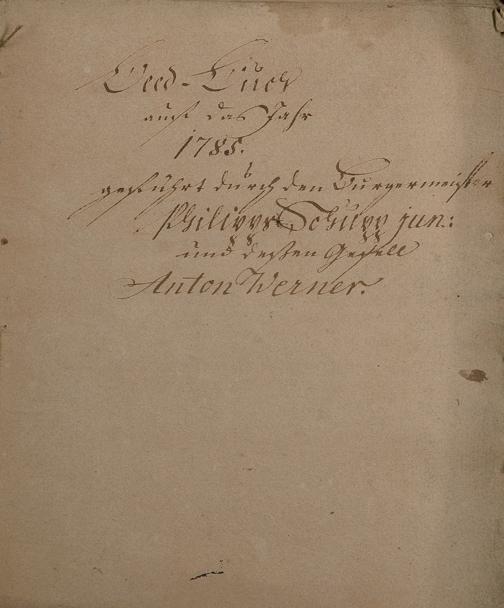 Beed-Buch
auf das Jahr
1785.
geführt durch den Burgermeister
Philipps Schupp jun:
und dessen Gesell
Anton Werner.